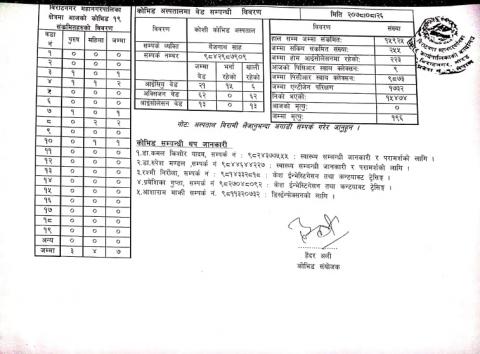 बिराटनगर महानगरपालिका
क्षेत्रमा आजको कोभिड १९
संक्रमितहरुको विवरण
वडा नं पुरुष महिला जम्मा
१ ० ० ०
२ ० ० ०
३ १ ० १
४ १ १ २
५ ० ० ०
६ ० ० ०
७ १ ० १
८ ० २ २
९ ० ० ०
१० ० १ १
११ ० ० ०
१२ ० ० ०
१३ ० ० ०
१४ ० ० ०
१५ ० ० ०
१६ ० ० ०
१७ ० ० ०
१८ ० ० ०
१९ ० ० ०
अन्य ० ० ०
जम्मा ३ ४ ७
कोभिड अस्पतालमा बेड सम्बन्धी विवरण
विवरण कोशी कोभिड अस्पताल
सम्पर्क व्यक्ति बैजनाथ साह
सम्पर्क नम्बर ९८४२९८७९०९
जम्मा बेड भर्ना रहेको खाली रहेको
आईसियु बेड २१ १५ ६
अक्सिजन बेड ६२ ० ६२
आइसोलेसन १३ ० १३
मिति २०७८।०८।२६
विवरण संख्या
हाल सम्म जम्मा संक्रमित:
जम्मा सक्रिय संक्रमित संख्या: २५५
जम्मा होम आईसोलेसनमा रहेको: २२३
आजको पिसिआर स्वाब कलेक्सन: ९
जम्मा पिसीआर स्वाब कलेक्सन:
जम्मा एन्टीजेन परिक्षण
निको भएको: १५४०४
आजको मृत्यु: ०
जम्मा मृत्यु: १९६
नोट: अस्पताल बिरामी लैजानुभन्दा अगाडी सम्पर्क गरेर जानुहन ।
कोभिड सम्बन्धी थप जानकारी
१.डा.कमल किशोर यादव, सम्पर्क नं : ९८२४३७७५५५ : स्वास्थ्य सम्बन्धी जानकारी र परामर्शको लागि ।
२.डा.रमेश मण्डल ,सम्पर्क नं : ९८४४६४४२२७ : स्वास्थ्य सम्बन्धी जानकारी र परामर्शको लागि ।
३.रश्मी निरौला, सम्पर्क नं : ९८१४३३२९१८ : केश ईन्भेस्टिगेसन तथा कन्ट्याक्ट ट्रेसिङ्ग ।
४.प्रमेशिका गुप्ता, सम्पर्क नं : ९८२७०४८०९२ : केश ईन्भेस्टिगेसन तथा कन्ट्याक्ट ट्रेसिङ्ग ।
५.आशाराम माझी सम्पर्क नं : ९८११३२०७३२ : डिस्ईन्फेक्सनको लागि ।
हैदर अली
कोभिड संयोजक